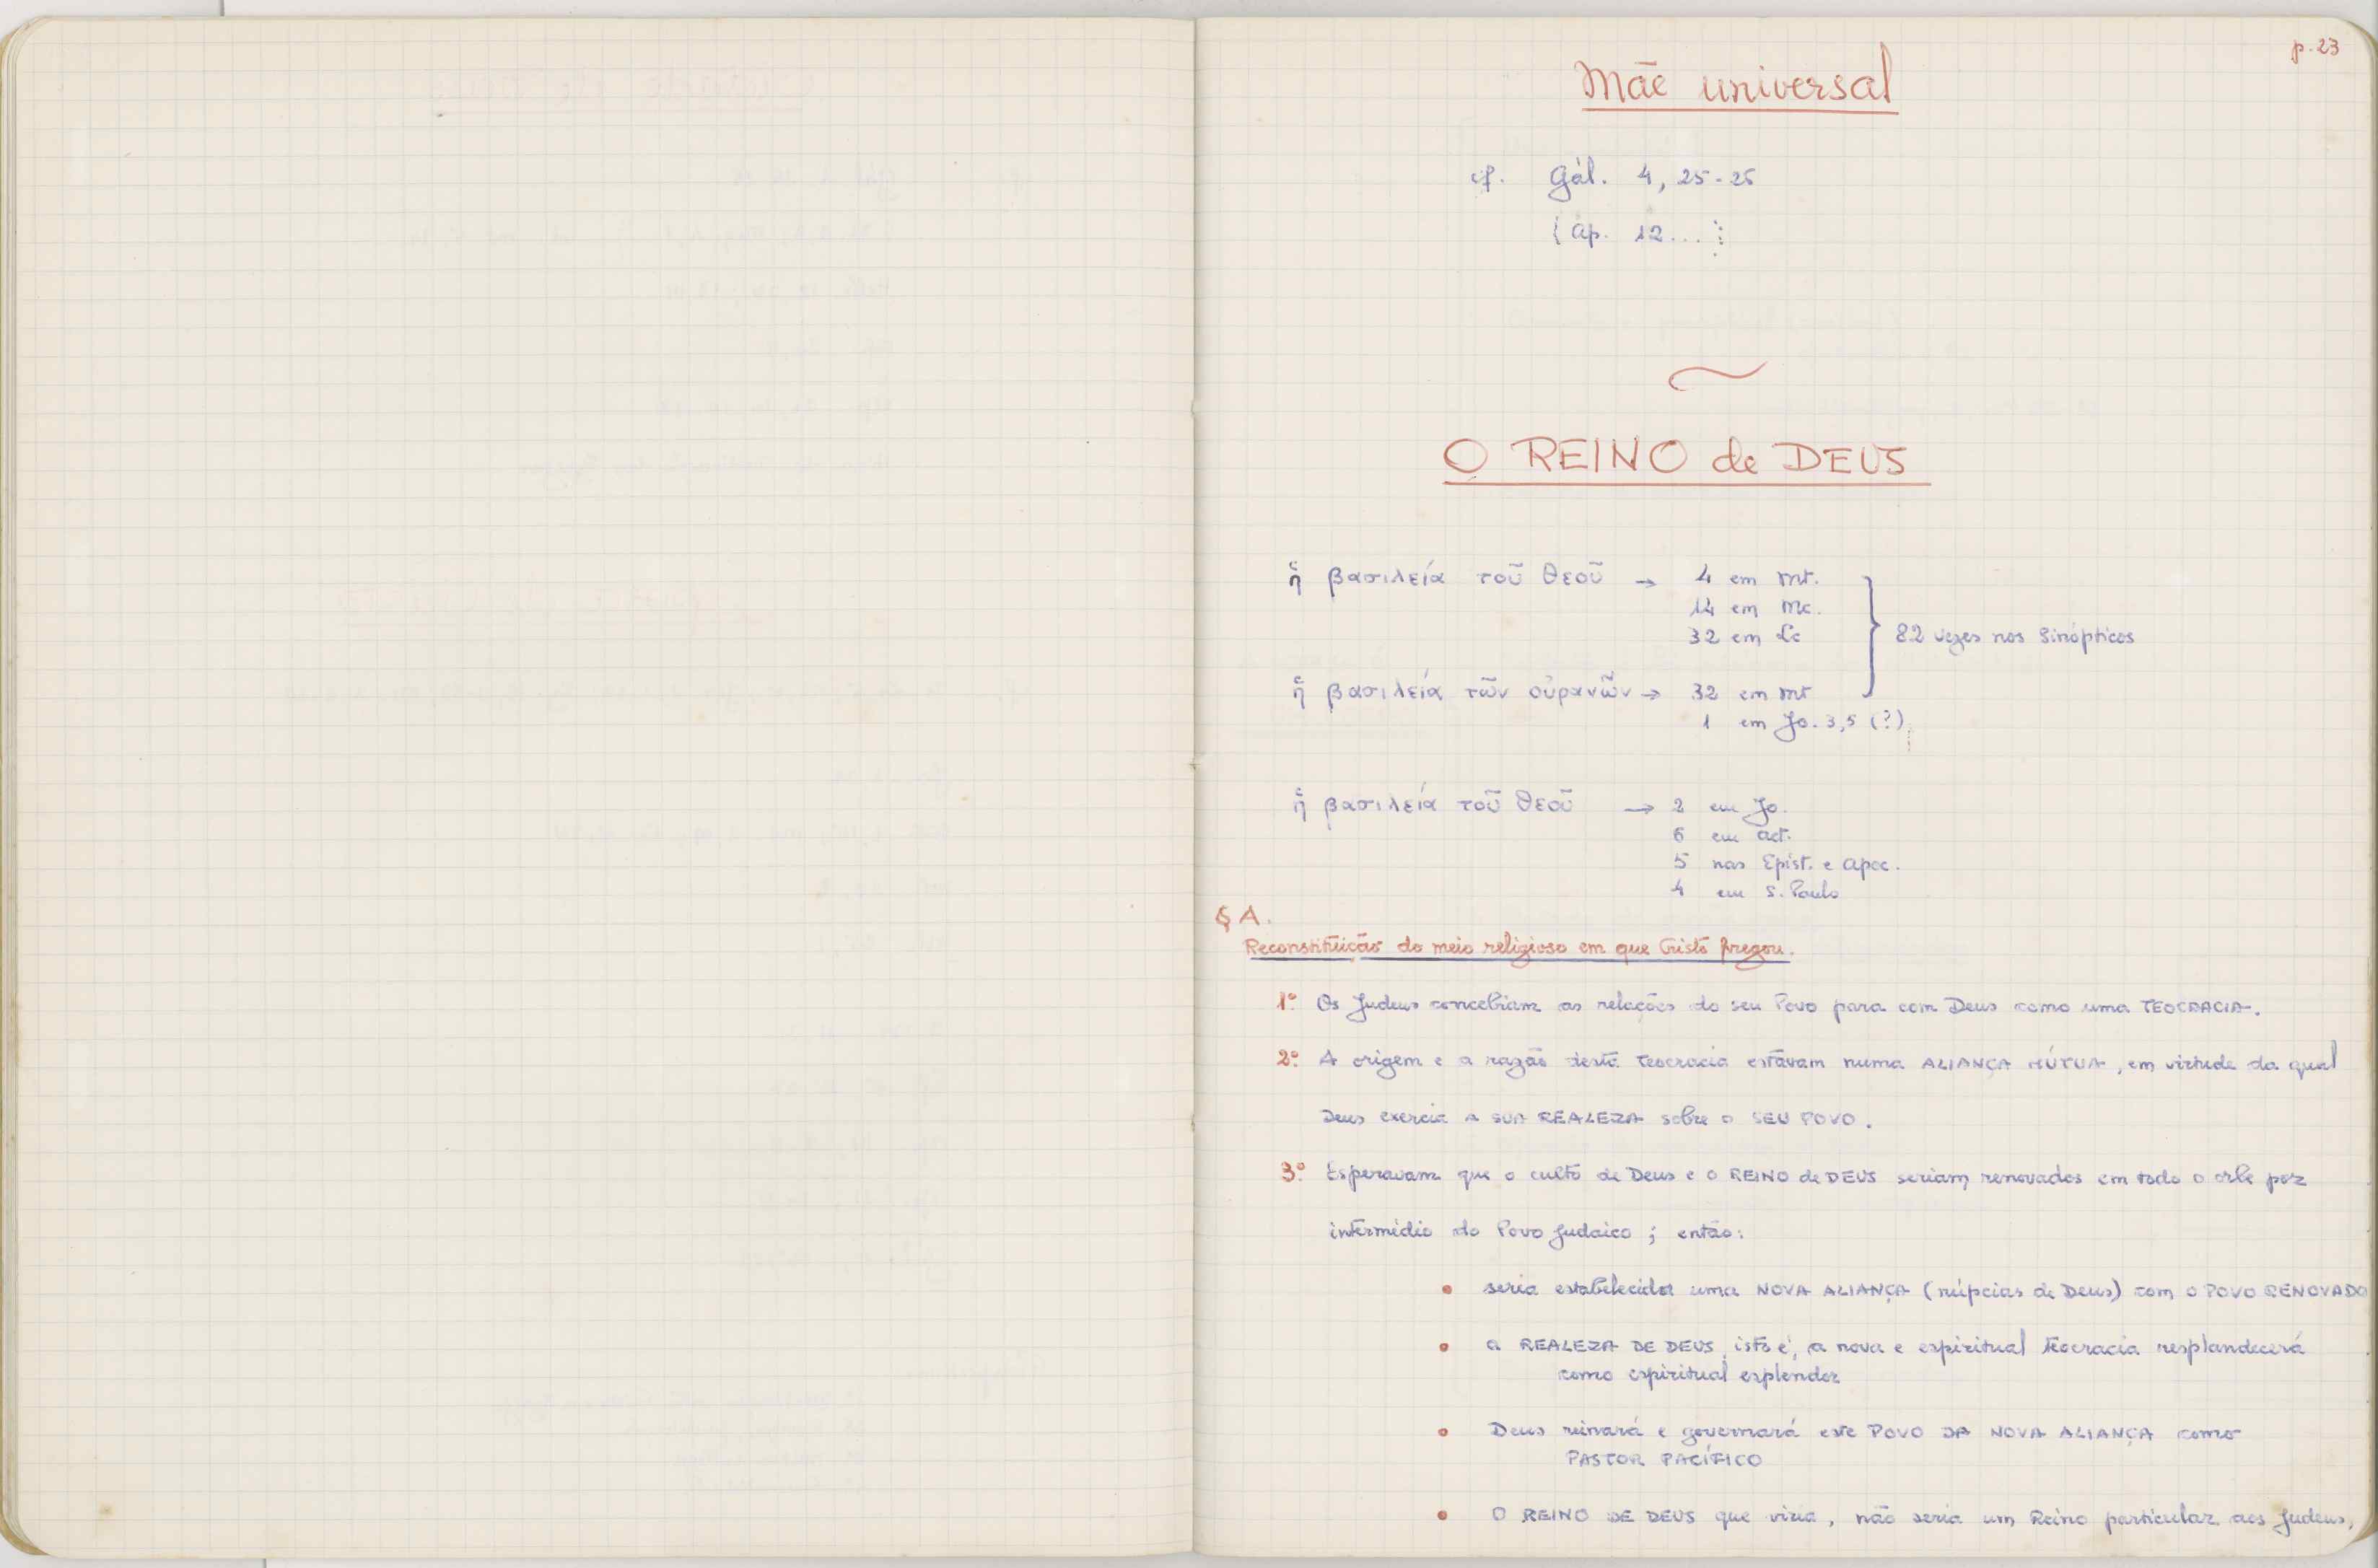 p. 23
Mãe universal
cf. Gál. 4, 25-26
(Ap. 12...
O REINO de DEUS
ἡ βασιλεία τοῦ θεοῦ → 4 em Mt.
14 em Mc.
32 em Lc
82 vezes nos Sinópticos
ἡ βασιλεία τῶν οὐρανῶν → 32 em Mt
1 em Jo. 3,5 (?)
ἡ βασιλεία τοῦ θεοῦ → 2 em Jo.
6 em Act.
5 nas Epist. e Apoc.
4 em S. Paulo
§ A.
Reconstituição do meio religioso em que Cristo pregou.
1º Os Judeus concebiam as relações do seu Povo para com Deus como uma TEOCRACIA.
2º A origem e a razão desta teocracia estavam numa ALIANÇA MÚTUA, em virtude da qual
Deus exercia a SUA REALEZA sobre o SEU POVO.
3º Esperavam que o culto de Deus e o REINO de DEUS seriam renovados em todo o orbe por
intermédio do Povo Judaico ; então:
• seria estabelecida uma NOVA ALIANÇA (núpcias de Deus) com o POVO RENOVADO
• a REALEZA DE DEUS, isto é, a nova e espiritual teocracia resplandecerá
como espiritual esplendor
• Deus reinará e governará este POVO DA NOVA ALIANÇA como
PASTOR PACÍFICO
• O REINO DE DEUS que viria, não seria um Reino particular aos Judeus,